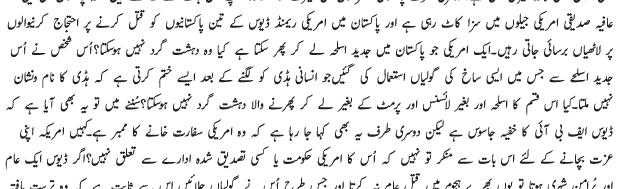 عافیہ صدیقی امریکی جیلوں میں سزا کاٹ رہی ہے اور پاکستان میں امریکی ریمنڈ ڈیوس کے تین پاکستانیوں کو قتل کرنے پر احتجاج کرنیوالوں
پر لاٹھیاں برسائی جاتی رہیں۔ایک امریکی جو پاکستان میں جدید اسلحہ لے کر پھر سکتا ہے کیا وہ دہشت گرد نہیں ہوسکتا؟اُس شخص نے اُس
جدید اسلحے سے جس میں ایسی ساخ کی گولیاں استعمال کی گئیں جو انسانی ہڈی کو لگنے کے بعد ایسے ختم کرتی ہے کہ ہڈی کا نام ونشان
نہیں ملتا۔کیا اس قسم کا اسلحہ اور بغیر لائسنس اور پرمٹ کے بغیر لے کر پھرنے والا دہشت گرد نہیں ہوسکتا؟سُننے میں تو یہ بھی آیا ہے کہ
ڈیوس ایف بی آئی کا خفیہ جاسوس ہے لیکن دوسری طرف یہ بھی کہا جا رہا ہے کہ وہ امریکی سفارت خانے کا ممبر ہے۔کہیں امریکہ اپنی
عزت بچانے کے لئے اس بات سے منکر تو نہیں کہ اُس کا امریکی حکومت یا کسی تصدیق شدہ ادارے سے تعلق نہیں؟اگر ڈیوس ایک عام